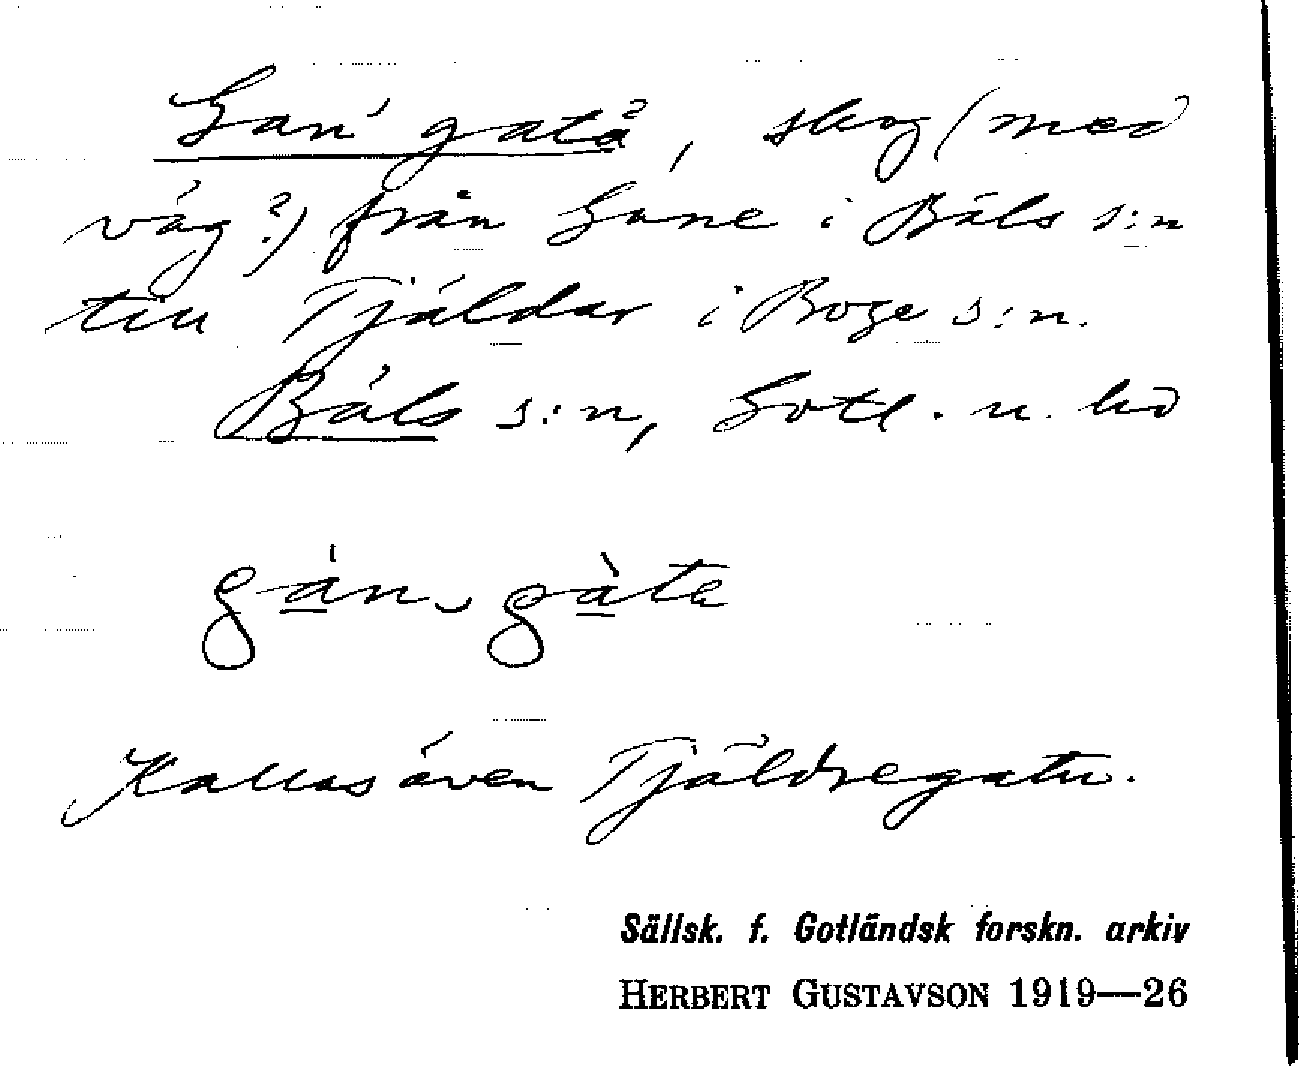 Gan'gatå, skog (med
väg?) från Gane i Bäls s:n
till Tjäldar i Boge s:n.
Bäls s:n, Gotl. n. hd
gán gàta
Kallas även Tjäldregatu.
Sällsk. f. Gotländsk forskn. arkiv
HERBERT GUSTAVSON 1919—26